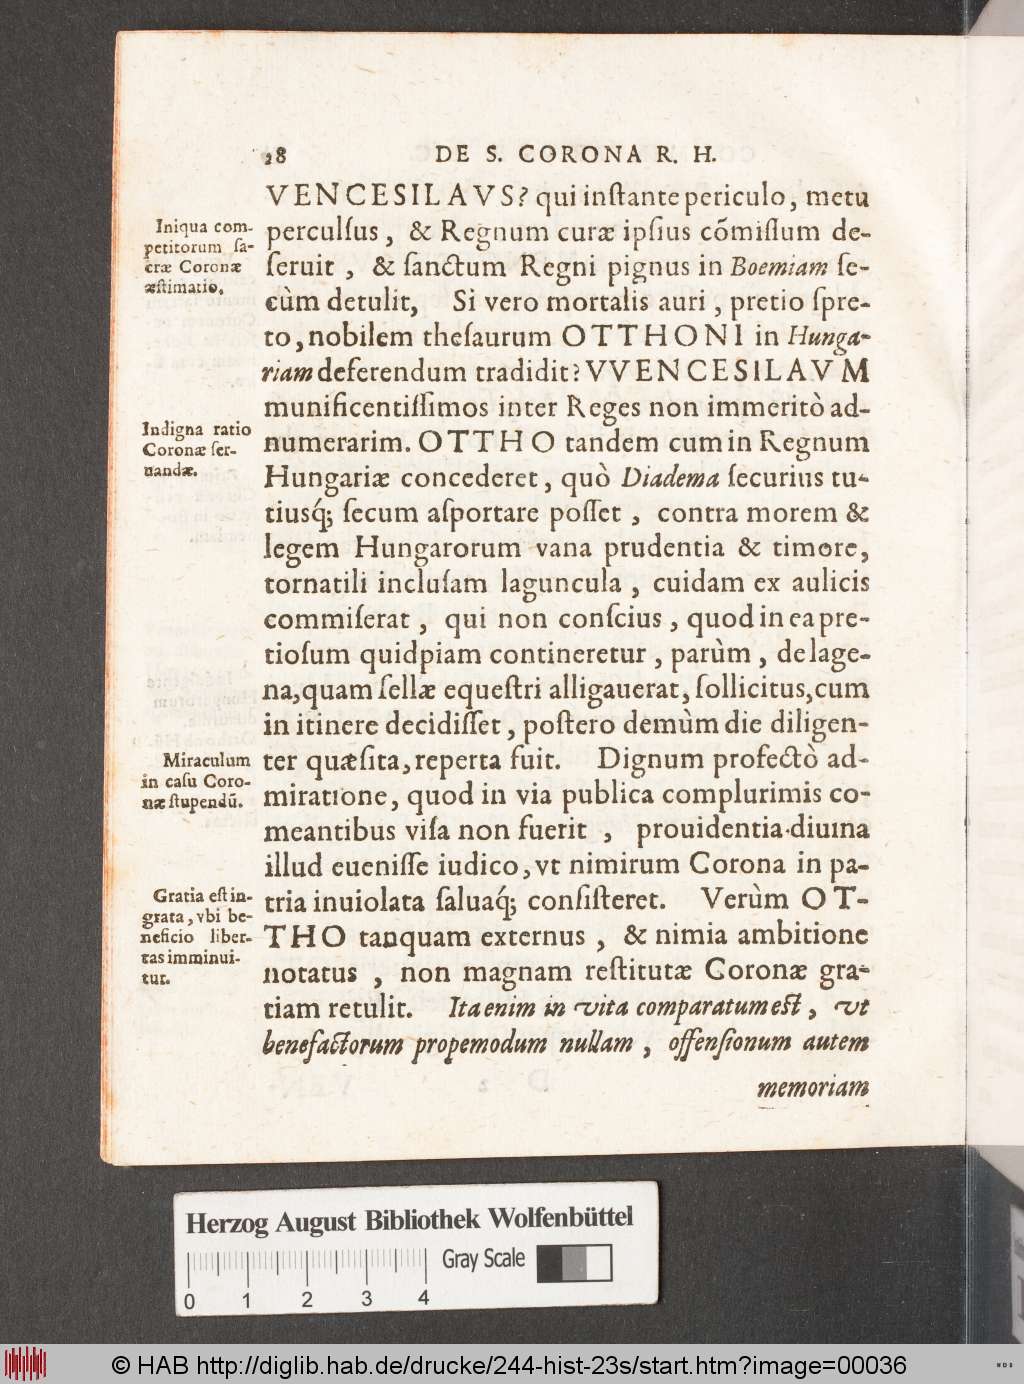 28 DE S. CORONA R. H.
VENCESILAVS? qui inſtante periculo, metu
perculſus, & Regnum curæ ipſius cõmiſſum de-
ſeruit, & ſanctum Regni pignus in Boemiam ſe-
cùm detulit, Si vero mortalis auri, pretio ſpre-
to, nobilem theſaurum OTTHONI in Hunga-
riam deferendum tradidit? VVENCESILAVM
munificentiſſimos inter Reges non immeritò ad-
numerarim. OTTHO tandem cum in Regnum
Hungariæ concederet, quò Diadema ſecurius tu-
tiusq́; ſecum aſportare poſſet, contra morem &
legem Hungarorum vana prudentia & timore,
tornatili incluſam laguncula, cuidam ex aulicis
commiſerat, qui non conſcius, quod in ea pre-
tioſum quidpiam contineretur, parùm, de lage-
na, quam ſellæ equeſtri alligauerat, ſollicitus, cum
in itinere decidiſſet, poſtero demùm die diligen-
ter quæſita, reperta fuit. Dignum profectò ad-
miratione, quod in via publica complurimis co-
meantibus viſa non fuerit, prouidentia diuina
illud eueniſſe iudico, vt nimirum Corona in pa-
tria inuiolata ſaluaq́; conſiſteret. Verùm OT-
THO tanquam externus, & nimia ambitione
notatus, non magnam reſtitutæ Coronæ gra-
tiam retulit. Ita enim in vita comparatum eſt, vt
benefactorum propemodum nullam, offenſionum autem
memoriam
Iniqua com-
petitorum ſa-
cræ Coronæ
æſtimatio.
Indigna ratio
Coronæ ſer-
uandæ.
Miraculum
in caſu Coro-
næ ſtupendũ.
Gratia eſt in-
grata, vbi be-
neficio liber-
tas imminui-
tur.
Herzog August Bibliothek Wolfenbüttel
Gray Scale
0 1 2 3 4
© HAB http://diglib.hab.de/drucke/244-hist-23s/start.htm?image=00036